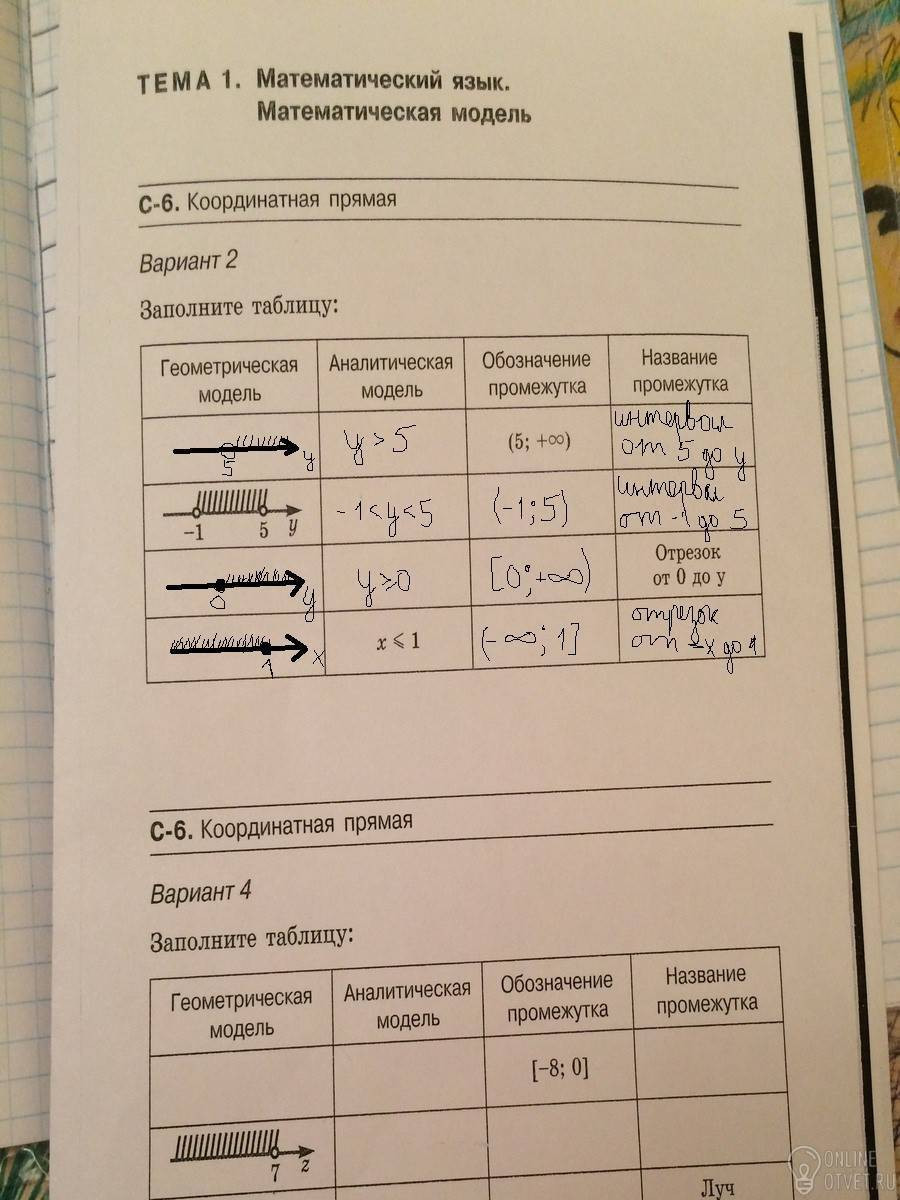 ТЕМА 1. Математический язык.
Математическая модель
С-6. Координатная прямая
Вариант 2
Заполните таблицу:
Геометрическая модель Аналитическая модель Обозначение промежутка Название промежутка
5 y y > 5 (5; +∞) интервал от 5 до y
-1 5 y -1 < y < 5 (-1; 5) интервал от -1 до 5
0 y y ⩾ 0 [0; +∞) Отрезок от 0 до y
1 x x ⩽ 1 (-∞; 1] отрезок от -x до 1
С-6. Координатная прямая
Вариант 4
Заполните таблицу:
Геометрическая модель Аналитическая модель Обозначение промежутка Название промежутка
[-8; 0]
7 z
Луч
ONLINE
OTVET.RU